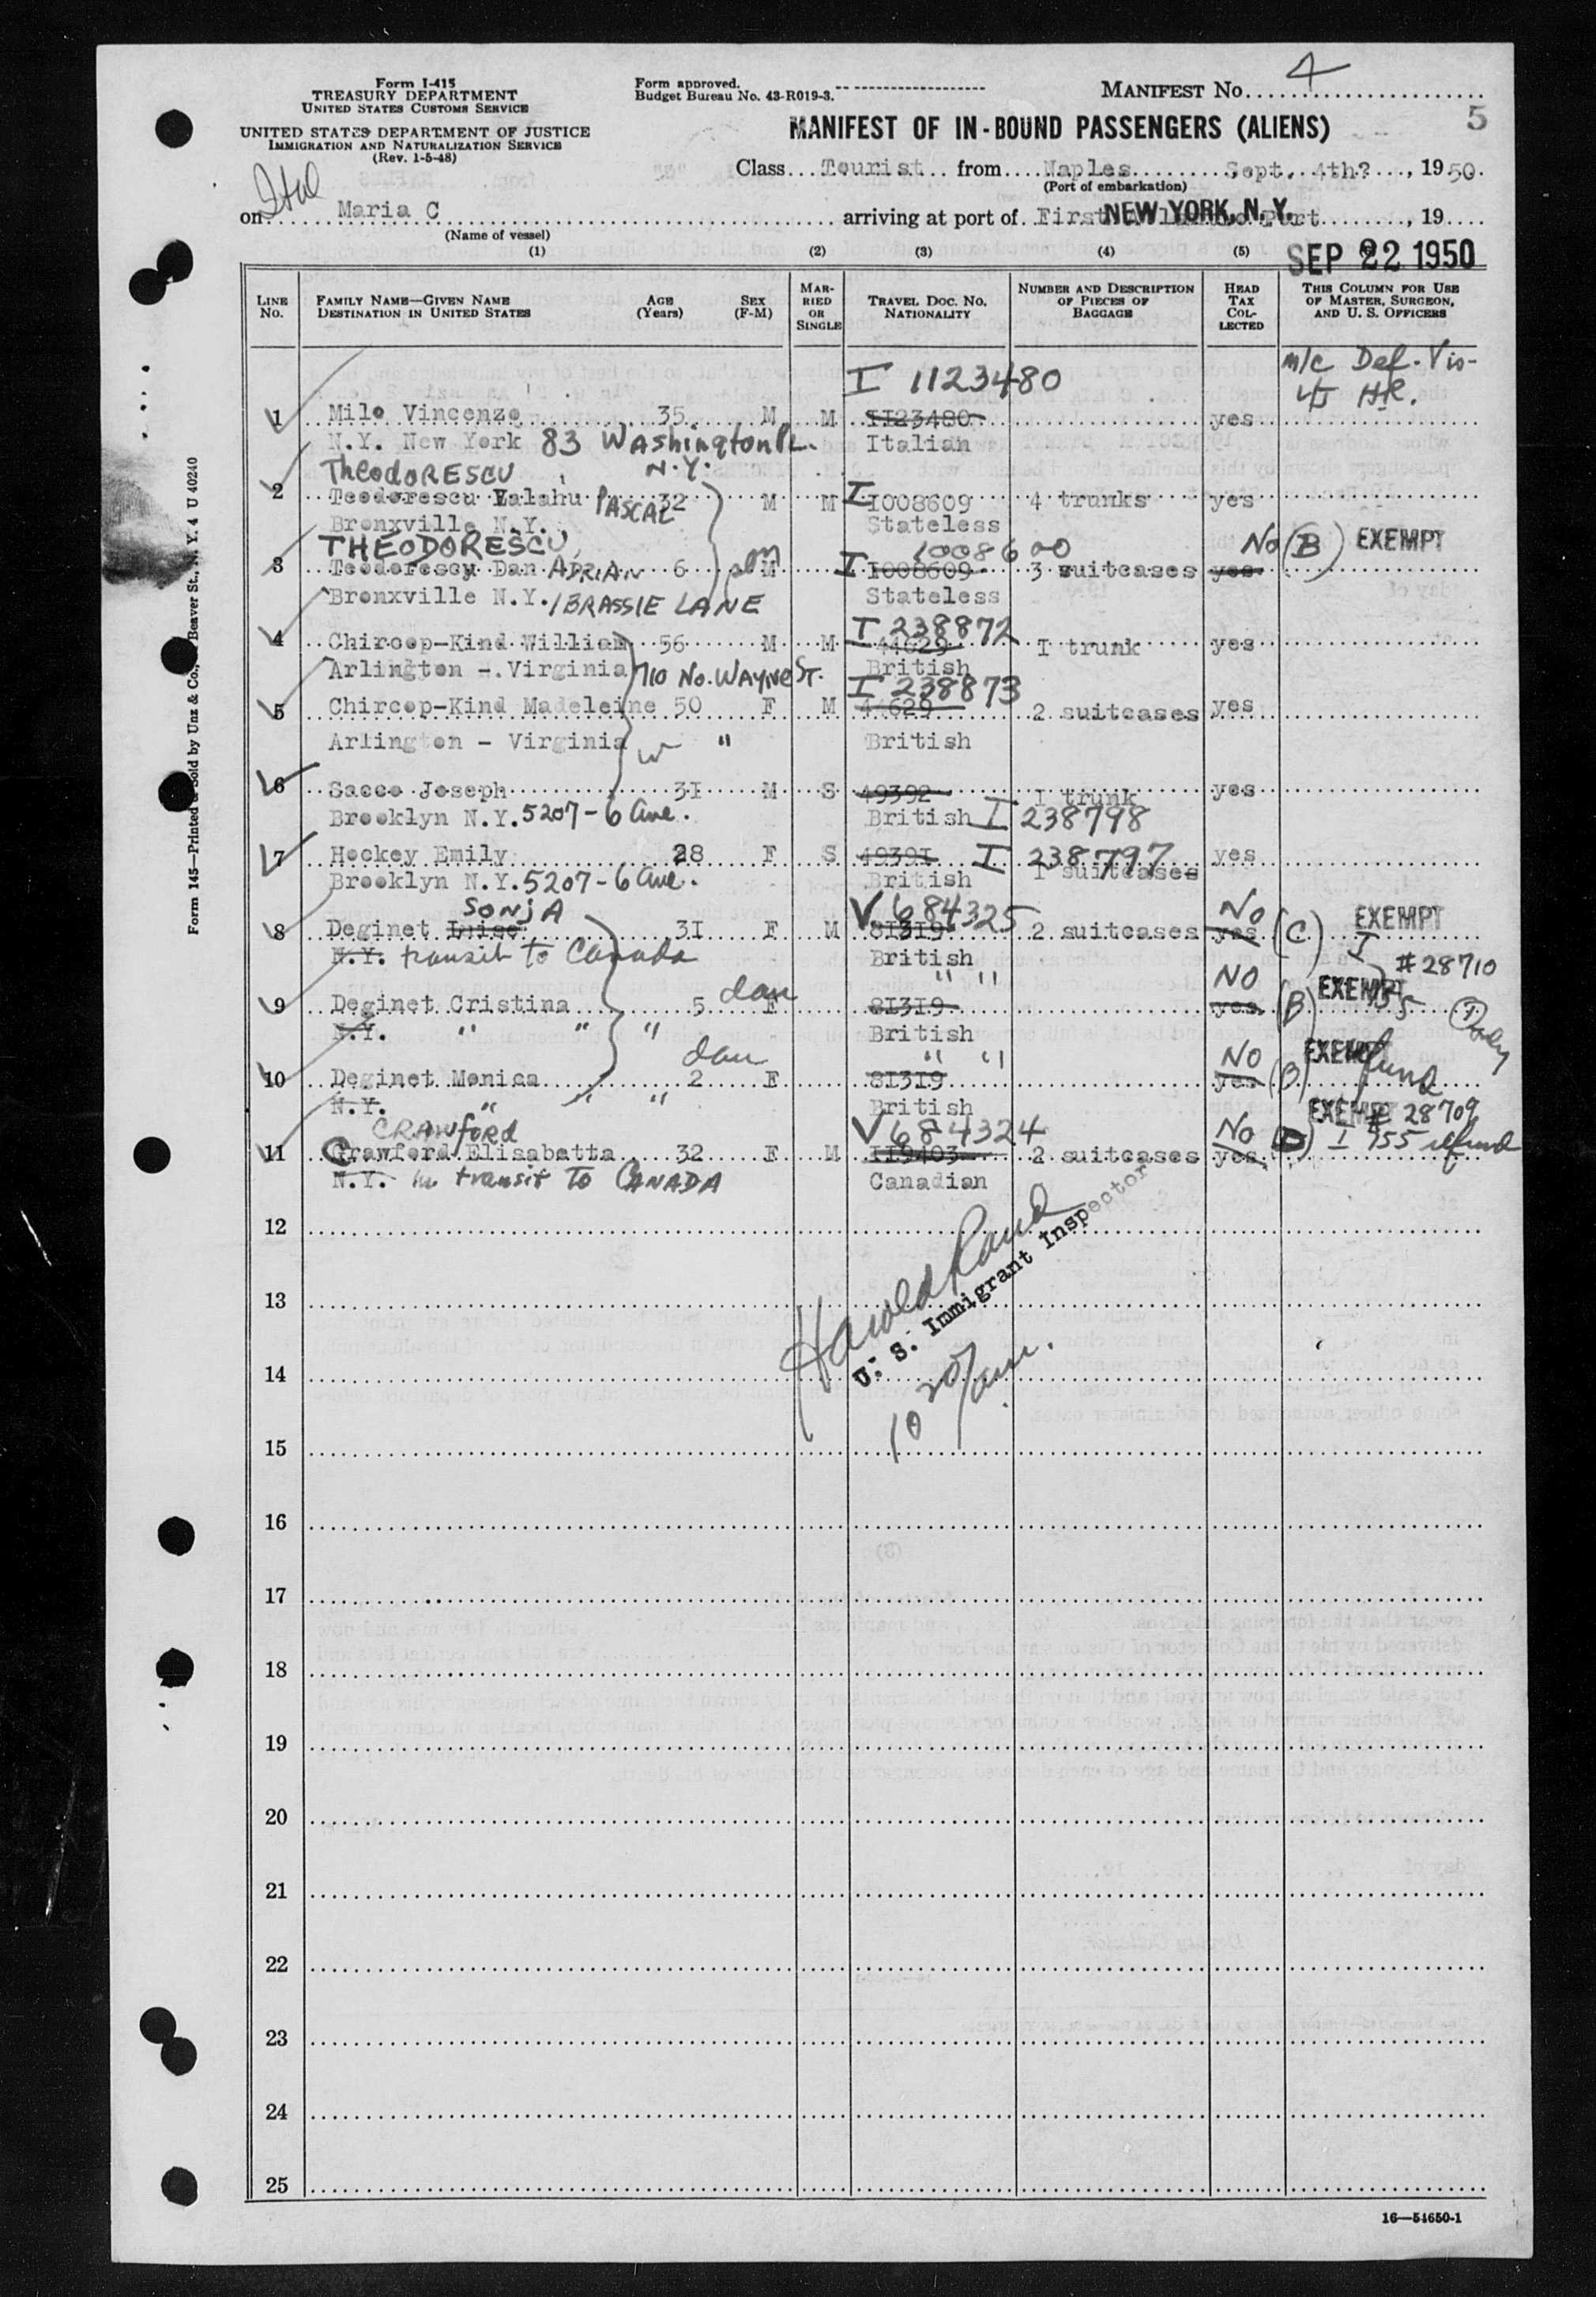 Form I-415
TREASURY DEPARTMENT
UNITED STATES CUSTOMS SERVICE
UNITED STATES DEPARTMENT OF JUSTICE
IMMIGRATION AND NATURALIZATION SERVICE
(Rev. 1-5-48)
Form approved.
Budget Bureau No. 43-R019-3.
MANIFEST No. 4
5
MANIFEST OF IN-BOUND PASSENGERS (ALIENS)
Class Tourist from Naples Sept. 4th? , 1950
(Port of embarkation)
Ital
on Maria C arriving at port of First Port , 19
NEW YORK, N.Y.
(Name of vessel)
SEP 22 1950
(1) (2) (3) (4) (5)
LINE No. FAMILY NAME—GIVEN NAME DESTINATION IN UNITED STATES AGE (Years) SEX (F-M) MARRIED OR SINGLE TRAVEL DOC. No. NATIONALITY NUMBER AND DESCRIPTION OF PIECES OF BAGGAGE HEAD TAX COLLECTED THIS COLUMN FOR USE OF MASTER, SURGEON, AND U. S. OFFICERS
I 1123480 m/c Def. Vis-
1 Milo Vincenzo 35 M M II23480 yes
N.Y. New York 83 Washington PL. Italian
N.Y.
Theodorescu
2 Teodorescu Valahu PASCAL 32 M M I I008609 4 trunks yes
Bronxville N.Y. Stateless
THEODORESCU 1008600 No (B) EXEMPT
3 Teodorescu Dan ADRIAN 6 son M I I008609 3 suitcases yes
Bronxville N.Y. 1 BRASSIE LANE Stateless
I 238872
4 Chircop-Kind William 56 M M 44629 I trunk yes
Arlington - Virginia 710 No. WAYNE ST. British
I 238873
5 Chircop-Kind Madeleine 50 F M 44629 2 suitcases yes
Arlington - Virginia w " British
6 Sacco Joseph 3I M S 49392 I trunk yes
Brooklyn N.Y. 5207-6 Ave. British I 238798
7 Hockey Emily 28 F S 4939I I 238797 yes
Brooklyn N.Y. 5207-6 Ave. British I suitcases
SONJA V 684325 No EXEMPT
8 Deginet Luise 3I F M 8I3I9 2 suitcases yes (C) I
N.Y. transit to Canada British #28710
dau " " NO EXEMPT
9 Deginet Cristina 5 F 8I3I9 yes (B) 755
N.Y. " " " British
dau " " NO EXEMPT
10 Deginet Monica 2 F 8I3I9 yes (B)
N.Y. " " " British
CRAWford V 684324 No EXEMPT # 28709
11 Crawford Elisabatta 32 F M II9403 2 suitcases yes I 755 refund
N.Y. in transit To CANADA Canadian
12
13
Harold Rand
U. S. Immigrant Inspector
10 20/am.
14
15
16
17
18
19
20
21
22
23
24
25
16—54650-1